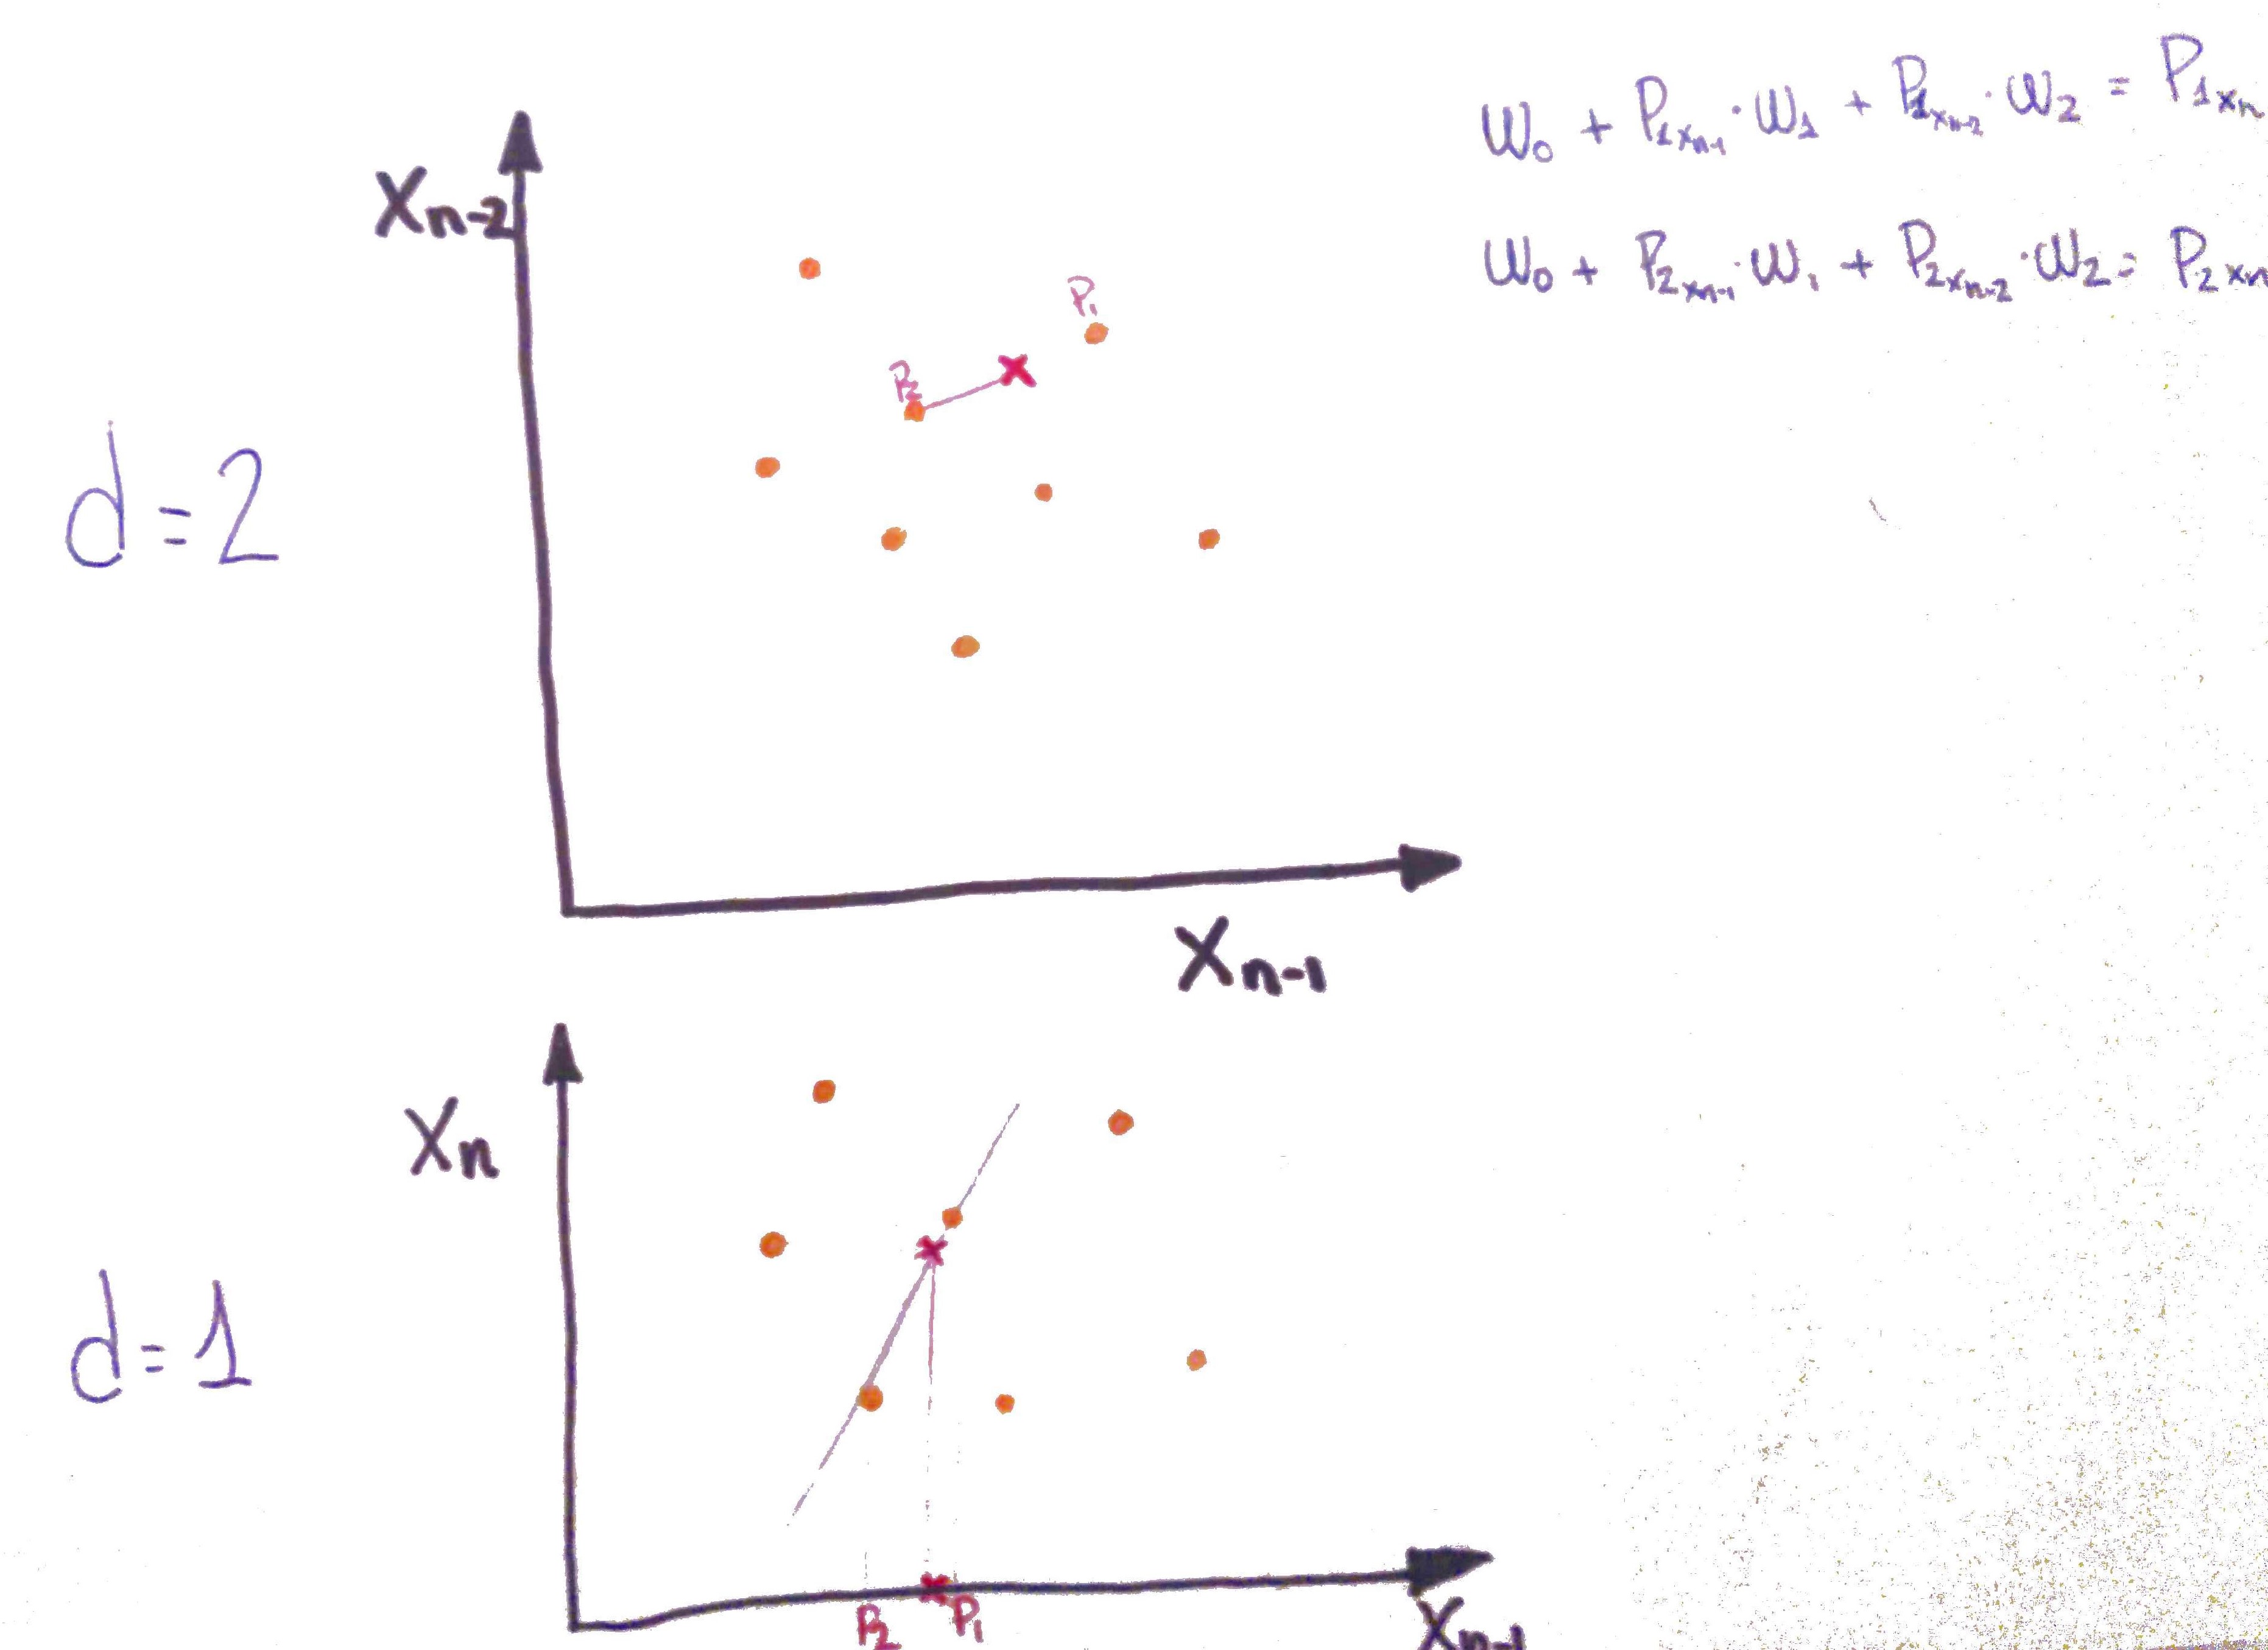 W₀ + P₁ₓₙ₋₁ · W₁ + P₁ₓₙ₋₂ · W₂ = P₁ₓₙ
W₀ + P₂ₓₙ₋₁ · W₁ + P₂ₓₙ₋₂ · W₂ = P₂ₓₙ
Xₙ₋₂
P₁
P₂
d=2
Xₙ₋₁
Xₙ
d=1
P₂ P₁
Xₙ₋₁